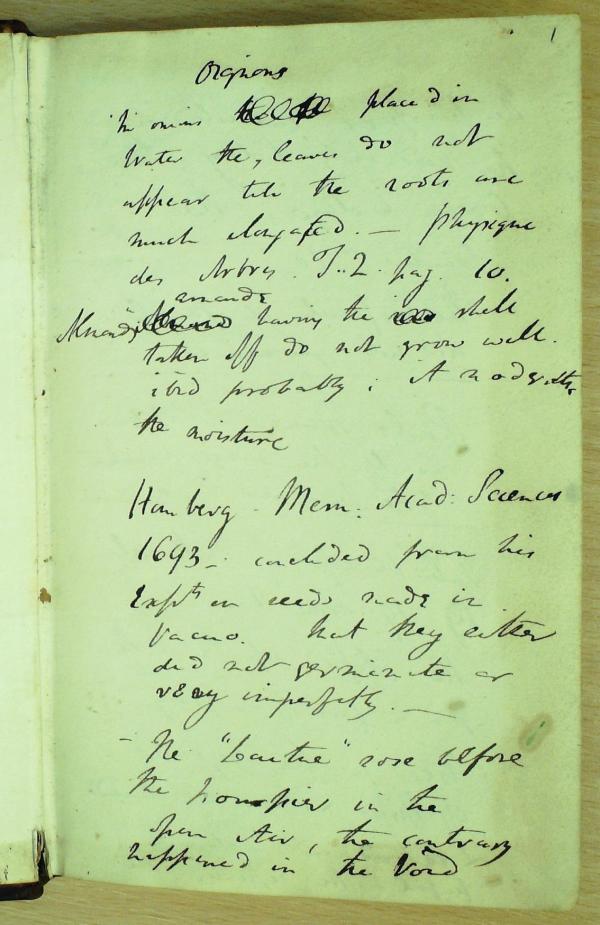 1
Oignons
In onions placed in
Water the, leaves do not
appear till the roots are
much elongated. — Physique
des Arbres. T. 2. pag. 10.
amande
Amande, having the shell
taken off do not grow well.
ibid probably; it moderates
the moisture
Homberg - Mem: Acad: Sciences
1693 - concluded from his
Expts on seeds made in
Vacuo. that they either
did not germinate or
very imperfectly. —
- The "Laitue" rose before
the pourpier in the
open Air, the contrary
happened in the Void